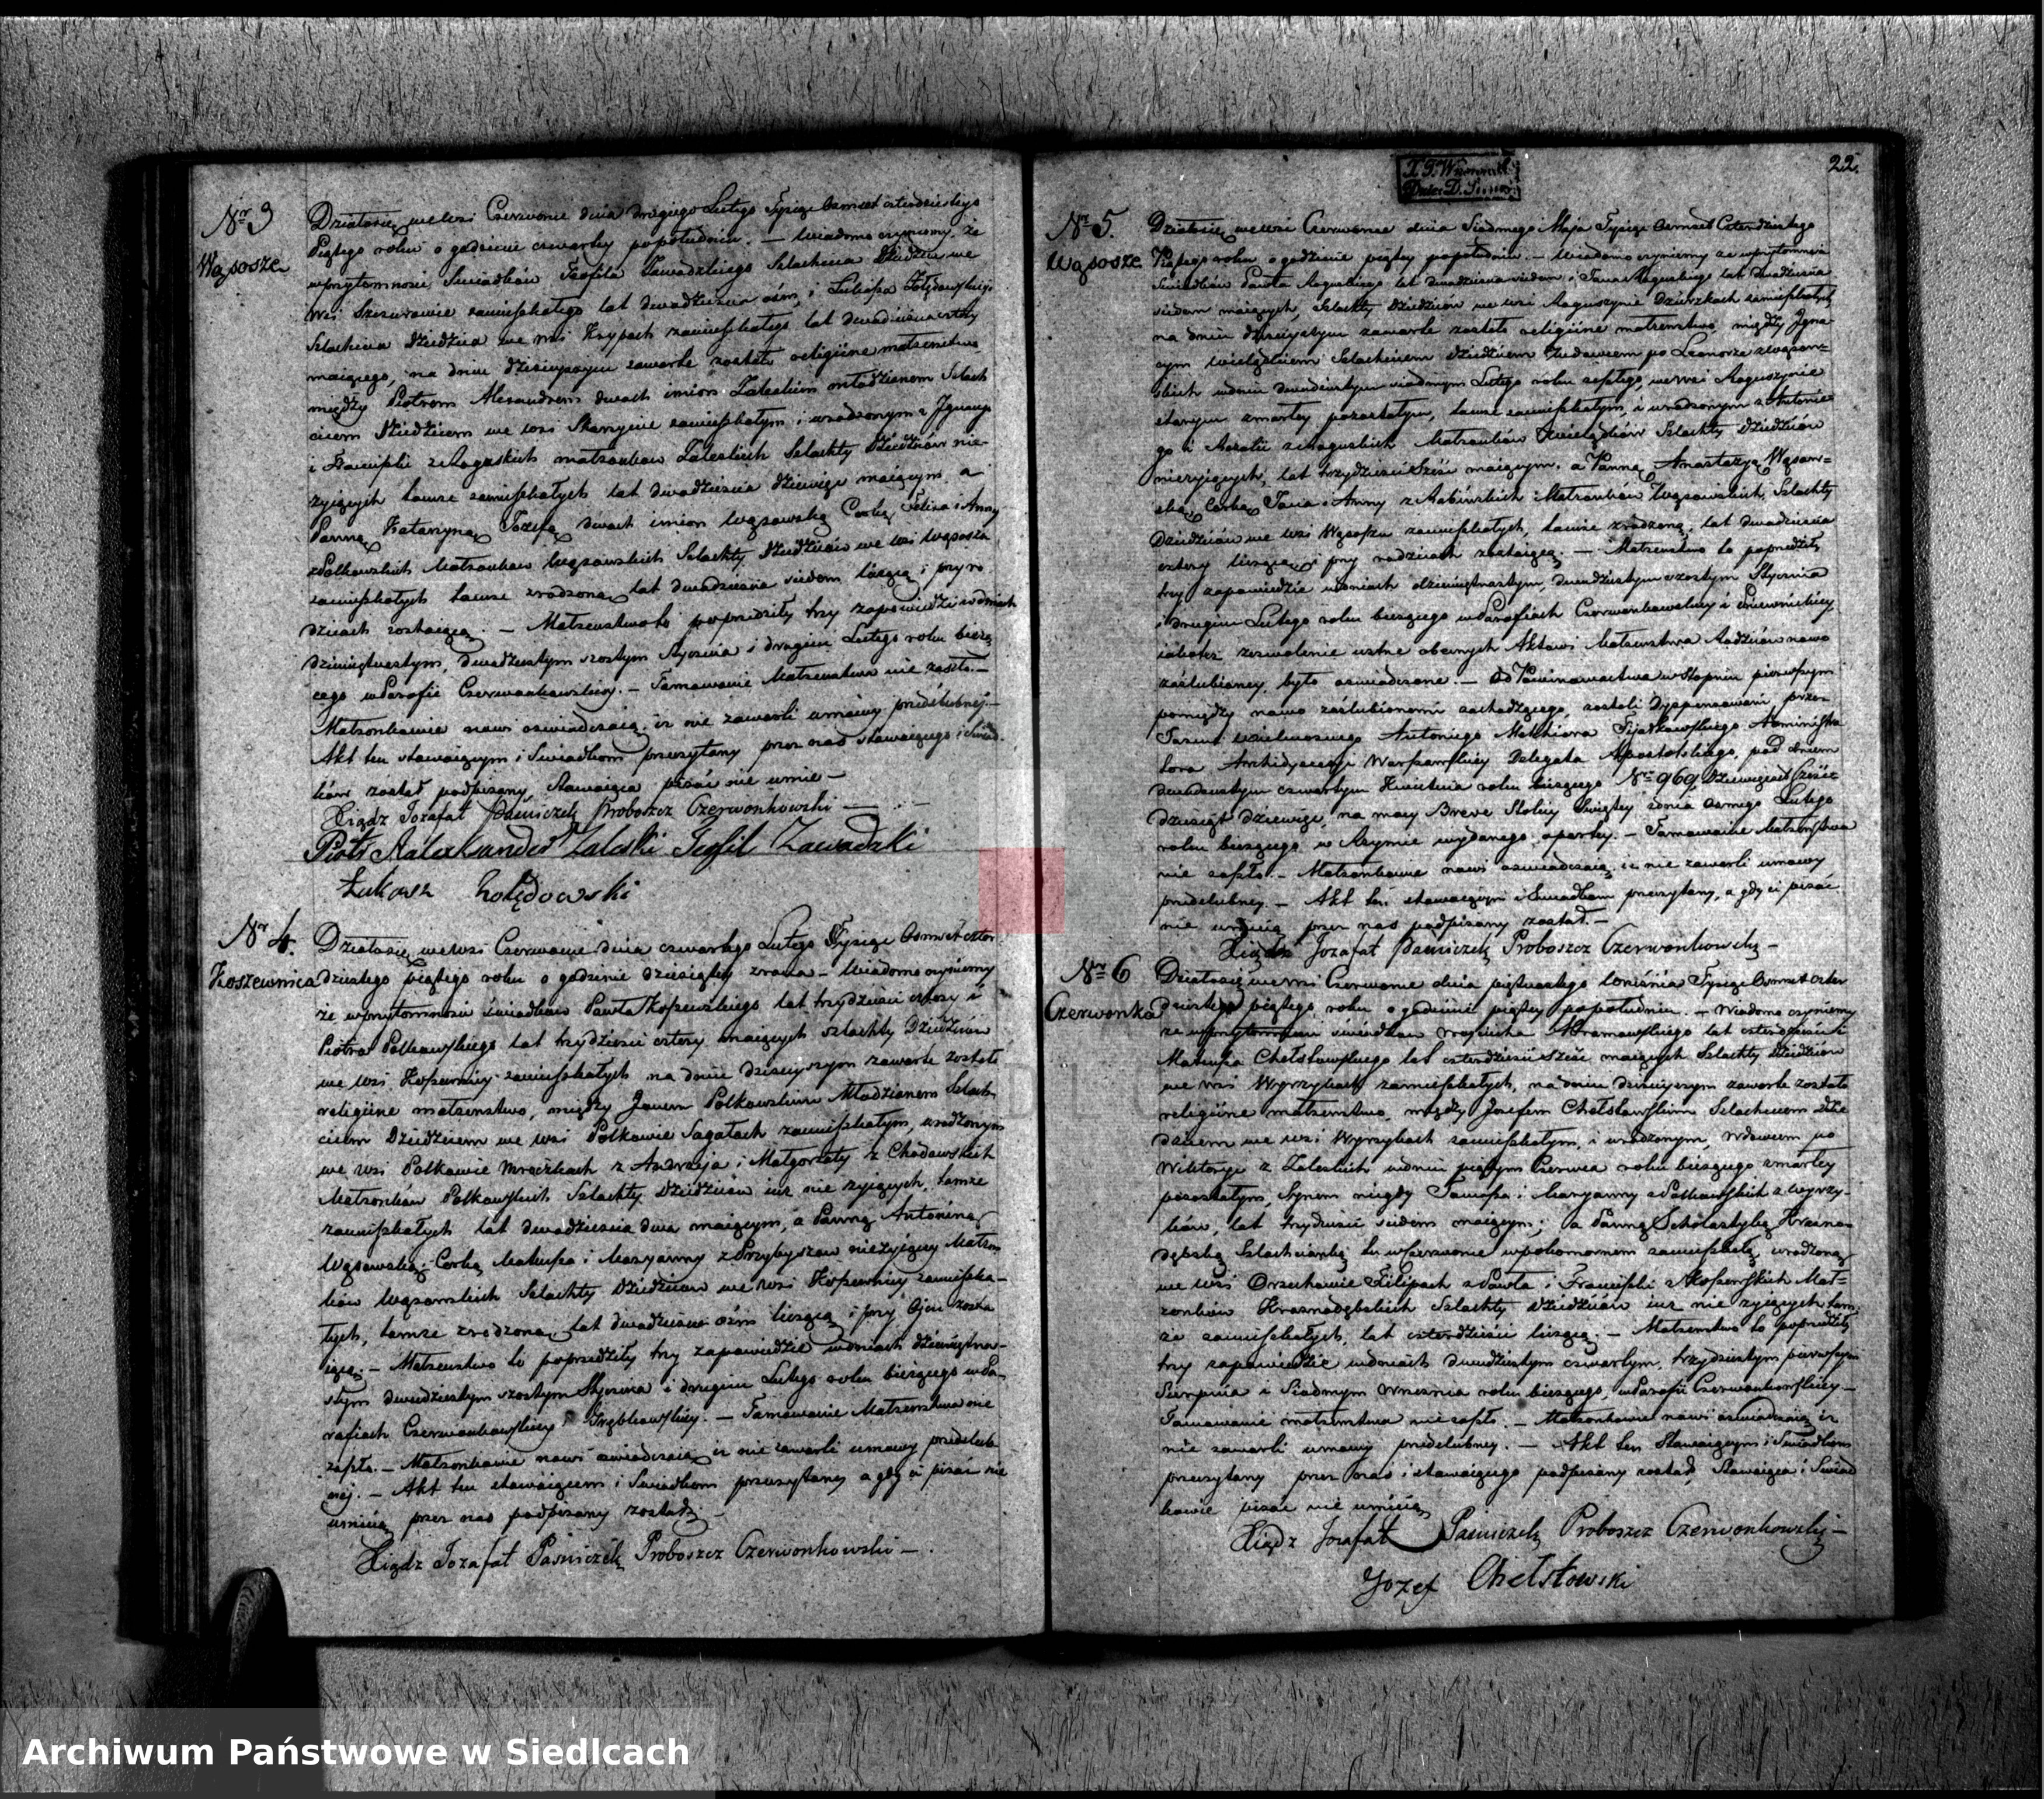 22.
Nr 3
Wąsosze
Działo się we wsi Czerwonce dnia drugiego Lutego Tysiąc Osmset czterdziestego
Piątego roku o godzinie czwartey popołudniu. — Wiadomo czyniemy, że
w przytomności Swiadków Teofila Zawadzkiego Szlachcica Dziedzica we
wsi zamieszkałego lat dwadzieścia ośm, i Łukasza Żołędowskiego
Szlachcica Dziedzica we wsi Krypach zamieszkałego lat dwadzieścia cztery
maiącego, na dniu dzisieyszym zawarte zostało religiine małżeństwo
między Piotrem Alexandrem dwóch imion Zaleskim młodzianem Szlach
cicem Dziedzicem we wsi Skarzynie zamieszkałym i urodzonym z Ignacego
i Franciszki z Roguskich małżonków Zaleskich Szlachty Dziedziców nie
żyiących tamże zamieszkałych lat dwadzieścia dziewięć maiącym, a
Panną Katarzyną Jozefą dwóch imion Wąsowską Corką Felixa i Anny
z Polkowskich Małżonków Wąsowskich Szlachty Dziedziców we wsi Wąsosza
zamieszkałych tamże zrodzoną lat dwadzieścia siedem liczącą i przy ro
dzicach zostaiącą. — Małżeństwo to poprzedziły trzy zapowiedzie w dniach
dziewiętnastym, dwudziestym szostym Stycznia i drugim Lutego roku bieżą
cego w Parafii Czerwonkowskiey. — Tamowanie Małżeństwa nie zaszło. —
Małżonkowie nowi oswiadczaią iż nie zawarli umowy przedślubney. —
Akt ten stawaiącym i Swiadkom przeczytany przez nas stawaiącego i Swiad
ków został podpisany, Stawaiąca pisać nie umie —
Xiądz Jozafat Paśniczek Proboszcz Czerwonkowski —
Piotr Aalexsander Zaleski Teofil Zawadzki
Łukasz Żołędowski
Nr 4.
Koszewnica
Działo się we wsi Czerwonce dnia czwartego Lutego Tysiąc Osmset czter
dziestego piątego roku o godzinie dziesiątey zrana — Wiadomo czyniemy
że w przytomności świadków Pawła Koszewskiego lat trzydzieści cztery i
Piotra Polkowskiego lat trzydzieści cztery maiących szlachty Dziedziców
we wsi Koszewnicy zamieszkałych na dniu dzisieyszym zawarte zostało
religiine małżeństwo, między Janem Polkowskim Młodzianem Szlach
cicem Dziedzicem we wsi Polkowie Sagałach zamieszkałym, urodzonym
we wsi Polkowie Mroczkach z Andrzeja i Małgorzaty z Chodowskich
Małżonków Polkowskich Szlachty Dziedziców iuż nie żyiących, tamże
zamieszkałych lat dwadzieścia dwa maiącym, a Panną Antoniną
Wąsowską Corką Mateusza i Maryanny z Przybyszów nieżyiącey Małżon
ków Wąsowskich Szlachty Dziedziców we wsi Koszewnicy zamieszka-
łych, tamże zrodzoną lat dwadzieścia ośm liczącą i przy Ojcu zosta
iącą. — Małżeństwo to poprzedziły trzy zapowiedzie w dniach dziewiętna-
stym dwudziestym szostym Stycznia i drugim Lutego roku bieżącego w Pa
rafiach Czerwonkowskiey i Grębkowskiey. — Tamowanie Małżeństwa nie
zaszło. — Małżonkowie nowi oswiadczaią iż nie zawarli umowy przedślub
nej. — Akt ten stawaiącem i Swiadkom przeczytany a gdy ci pisać nie
umieią przez nas podpisany został. —
Xiądz Jozafat Paśniczek Proboszcz Czerwonkowski —
Nr 5.
Wąsosze
Działo się we wsi Czerwonce dnia Siodmego Maja Tysiąc Osmset Czterdziestego
Piątego roku o godzinie piątey popołudniu. — Wiadomo czyniemy że w przytomności
Swiadków Pawła Roguskiego lat dwadzieścia siedem i Jana Roguskiego lat dwadzieścia
siedem maiących, Szlachty Dziedziców we wsi Roguszynie Dzierżkach zamieszkałych
na dniu dzisieyszym zawarte zostało religiine małżeństwo, między Igna-
cym Szlachcicem Dziedzicem Wdowcem po Leonorze z Wąsow-
skich w dniu dwudziestym siodmym Lutego roku zeszłego, we wsi Roguszynie
starym zmarłey pozostałym, tamże zamieszkałym, i urodzonym z Antonie
go i Rozalii z Roguskich Małżonków Szlachty Dziedziców
nieżyiących, lat trzydzieści Sześć maiącym, a Panną Anastazyą Wąsow-
ską, Corką Jana i Anny z Rabińskich Małżonków Wąsowskich, Szlachty
Dziedziców we wsi Wąsoszu zamieszkałych, tamże zrodzoną, lat dwadzieścia
cztery liczącą i przy rodzicach zostaiącą. — Małżeństwo to poprzedziły
trzy zapowiedzie w dniach dziewiętnastym, dwudziestym szostym Stycznia
i drugim Lutego roku bieżącego w Parafiach Czerwonkowskiey i Pniewnickiey,
iakoteż zezwolenie ustne obecnych Aktowi Małżeństwa Rodziców nowo
zaślubioney, było oswiadczone. — Od Powinowactwa w Stopniu pierwszym
pomiędzy nowo zaślubionemi zachodzącego, zostali dyspensowani przez
Jasnie Wielmożnego Antoniego Melchiora Fijałkowskiego Administra
tora Archidyecezyi Warszawskiey Delegata Apostolskiego, pod dniem
dwudziestym czwartym Kwietnia roku bieżącego Nr 969 Dziewięćset Sześć-
dziesiąt dziewięć, na mocy Breve Stolicy Swiętey z dnia Osmego Lutego
roku bieżącego w Rzymie wydanego, opartey. — Tamowanie Małżeństwa
nie zaszło. — Małżonkowie nowi oswiadczaią, iż nie zawarli umowy
przedślubney. — Akt ten stawaiącym i Swiadkom przeczytany, a gdy ci pisać
nie umieią przez nas podpisany został. —
Xiądz Jozafat Paśniczek Proboszcz Czerwonkowski —
Nr 6
Czerwonka
Działo się we wsi Czerwonce dnia piętnastego Wrzésnia Tysiąc Osmset czter
dziestego piątego roku o godzinie piątey popołudniu. — Wiadomo czyniemy
że w przytomności swiadków Woyciecha Abramowskiego lat czterdzieści i
Mateusza Chełstowskiego lat czterdzieści sześć maiących Szlachty Dziedziców
we wsi Wyrzykach zamieszkałych, na dniu dzisieyszym zawarte zostało
religiine małżeństwo, między Jozefem Chełstowskim Szlachcicem Dzie
dzicem we wsi Wyrzykach zamieszkałym, i urodzonym, Wdowcem po
Wiktoryi z Zaleskich w dniu piątym Czerwca roku bieżącego zmarłey
pozostałym, Synem niegdy Tomasza i Maryanny z Polkowskich z Wyrzy-
ków, lat trzydzieści siedem maiącym; a Panną Scholastyką Krasno-
dębską Szlachcianką tu w Czerwonce w pokomornem zamieszkałą, urodzoną
we wsi Orzechowie Filipach z Pawła i Franciszki z Koszewskich Mał-
żonków Krasnodębskich Szlachty Dziedziców iuż nie żyiących tam
że zamieszkałych, lat czterdzieści liczącą. — Małżeństwo to poprzedziły
trzy zapowiedzie w dniach dwudziestym czwartym, trzydziestym pierwszym
Sierpnia i Siodmym Wrzesnia roku bieżącego, w Parafii Czerwonkowskiey —
Tamowanie małżeństwa nie zaszło. — Małżonkowie nowi oswiadczaią iż
nie zawarli umowy przedślubney. — Akt ten Stawaiącym i Swiadkom
przeczytany przez nas i stawaiącego podpisany został, Stawaiąca i Swiad
kowie pisać nie umieią
Xiądz Jozafat Paśniczek Proboszcz Czerwonkowski —
Jozef Chełstowski
Archiwum Państwowe w Siedlcach